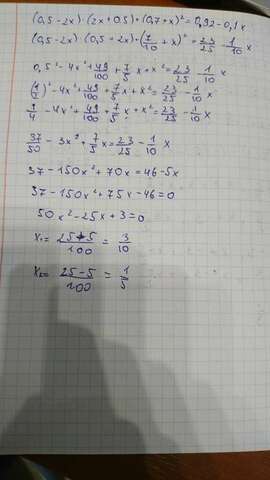 (0,5-2x)·(2x+0,5)+(0,7+x)²=0,92-0,1x
(0,5-2x)·(0,5+2x)+(7/10+x)²=23/25-1/10x
0,5²-4x²+49/100+7/5x+x²=23/25-1/10x
(1/2)²-4x²+49/100+7/5x+x²=23/25-1/10x
1/4-4x²+49/100+7/5x+x²=23/25-1/10x
37/50-3x²+7/5x=23/25-1/10x
37-150x²+70x=46-5x
37-150x²+75x-46=0
50x²-25x+3=0
x₁=25+5/100=3/10
x₂=25-5/100=1/5